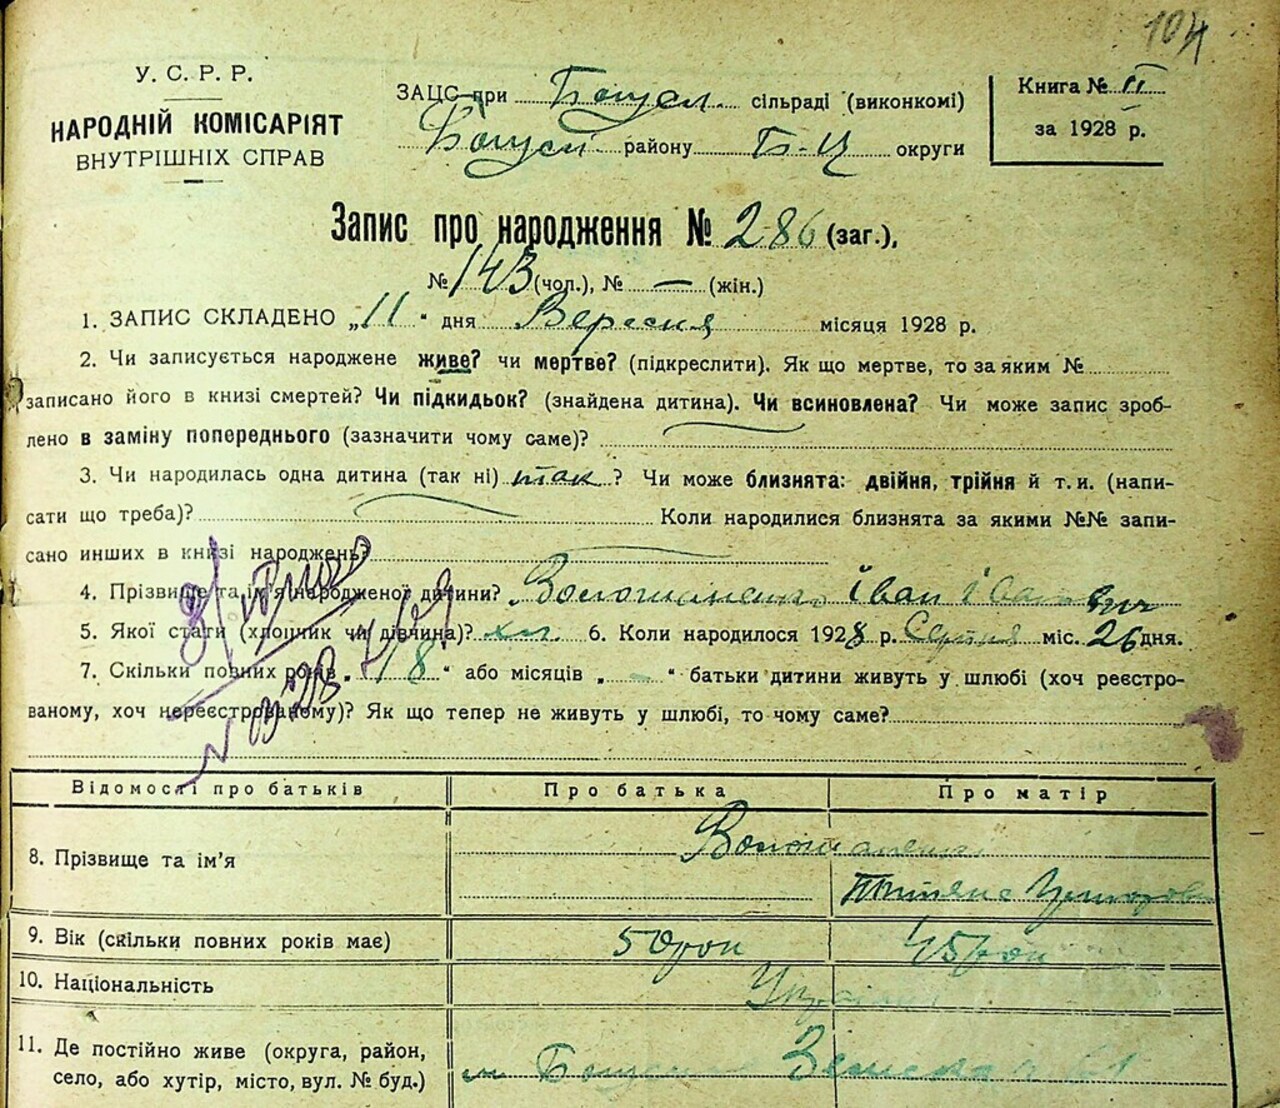 104
У. С. Р. Р.
НАРОДНІЙ КОМІСАРІЯТ
ВНУТРІШНІХ СПРАВ
ЗАЦС при Богусл. сільраді (виконкомі)
району Б-Ц округи
Книга № II
за 1928 р.
Запис про народження № 286 (заг.),
№ 143 (чол.), № — (жін.)
1. ЗАПИС СКЛАДЕНО „11" дня Вересня місяця 1928 р.
2. Чи записується народжене живе? чи мертве? (підкреслити). Як що мертве, то за яким №
записано його в книзі смертей? Чи підкидьок? (знайдена дитина). Чи всиновлена? Чи може запис зроб-
лено в заміну попереднього (зазначити чому саме)?
3. Чи народилась одна дитина (так ні) так? Чи може близнята: двійня, трійня й т. и. (напи-
сати що треба)? Коли народилися близнята за якими №№ запи-
сано инших в книзі народжень?
4. Прізвище та ім'я народженої дитини? Іван Іванович
5. Якої стати (хлопчик чи дівчина)? хл. 6. Коли народилося 1928 р. Серпня міс. 26 дня.
7. Скільки повних років „18" або місяців „-" батьки дитини живуть у шлюбі (хоч реєстро-
ваному, хоч нереєстрованому)? Як що тепер не живуть у шлюбі, то чому саме?
Відомості про батьків Про батька Про матір
8. Прізвище та ім'я
Тетяна
9. Вік (скільки повних років має) 50 рок 45 рок
10. Національність
11. Де постійно живе (округа, район,
село, або хутір, місто, вул. № буд.) м